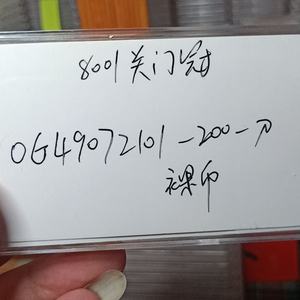 8001关门冠
OG49072101-200-刀
裸币